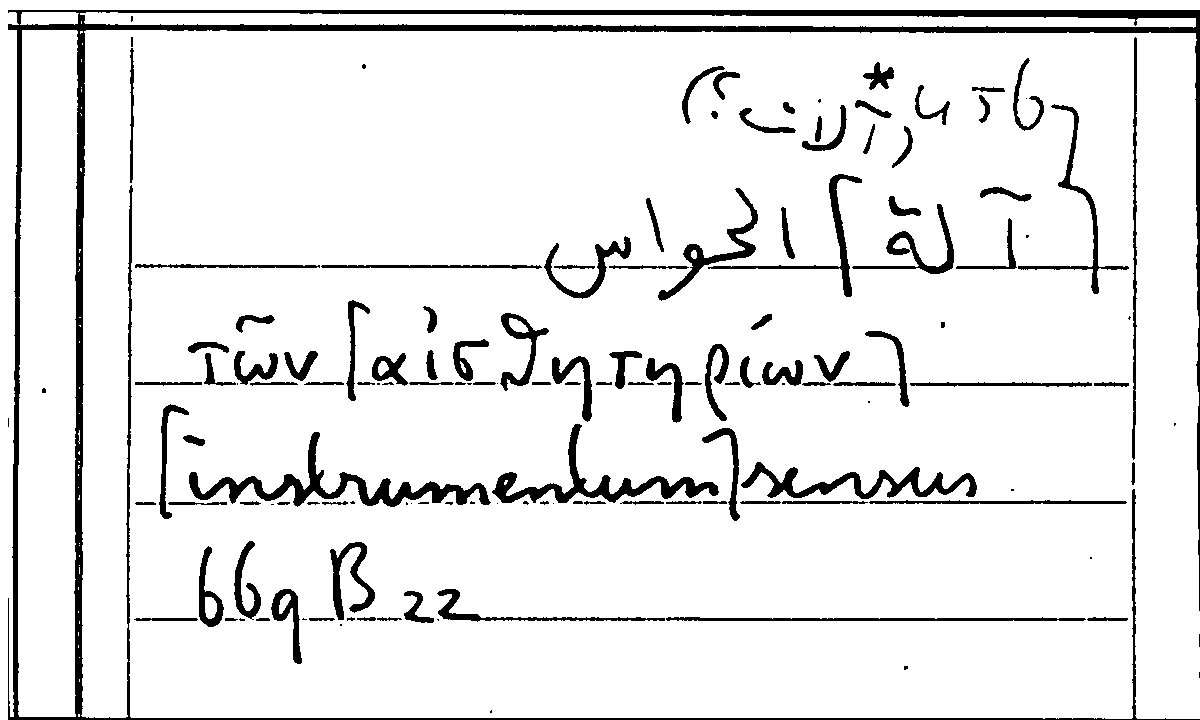 ⌈آلة⌉ الحواس
τῶν ⌈αἰσθητηρίων⌉
⌈instrumentum⌉ sensus
669 B 22